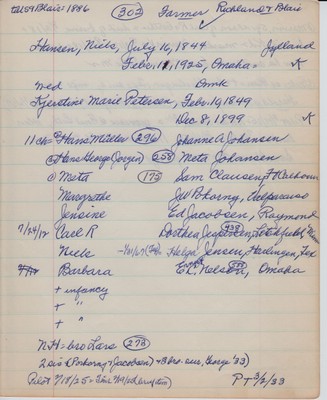 to US 9 Blair: 1886 (302) Farmer Richland & Blair
Hansen, Niels, July 16, 1844 Jylland
Febr. 11, 1925, Omaha X
wed Dmk
Kjerstine Marie Petersen, Febr. 10, 1849
Dec. 8, 1899 X
11 ch = Hans Miller (296) Johanne A. Johansen
Hans George (Jorgen) (258) Meta Johansen
Meta (175) Sam Clausen, Ft Calhoun
Margrethe Jas Pokorny, Valparaiso
Jensine Ed Jacobsen, Raymond
7/24/12 Carl R Dorthea Litchfield, Minn
Niels Helga Jensen, Harlingen, Tex
Barbara E.L. Nelson, Omaha
+ infancy
+ "
+ "
N.H = bro Lars (278)
2 sis (Pokorny & Jacobsen) + 3 bro. sur, George '33)
Pilot
PT 3/2/33